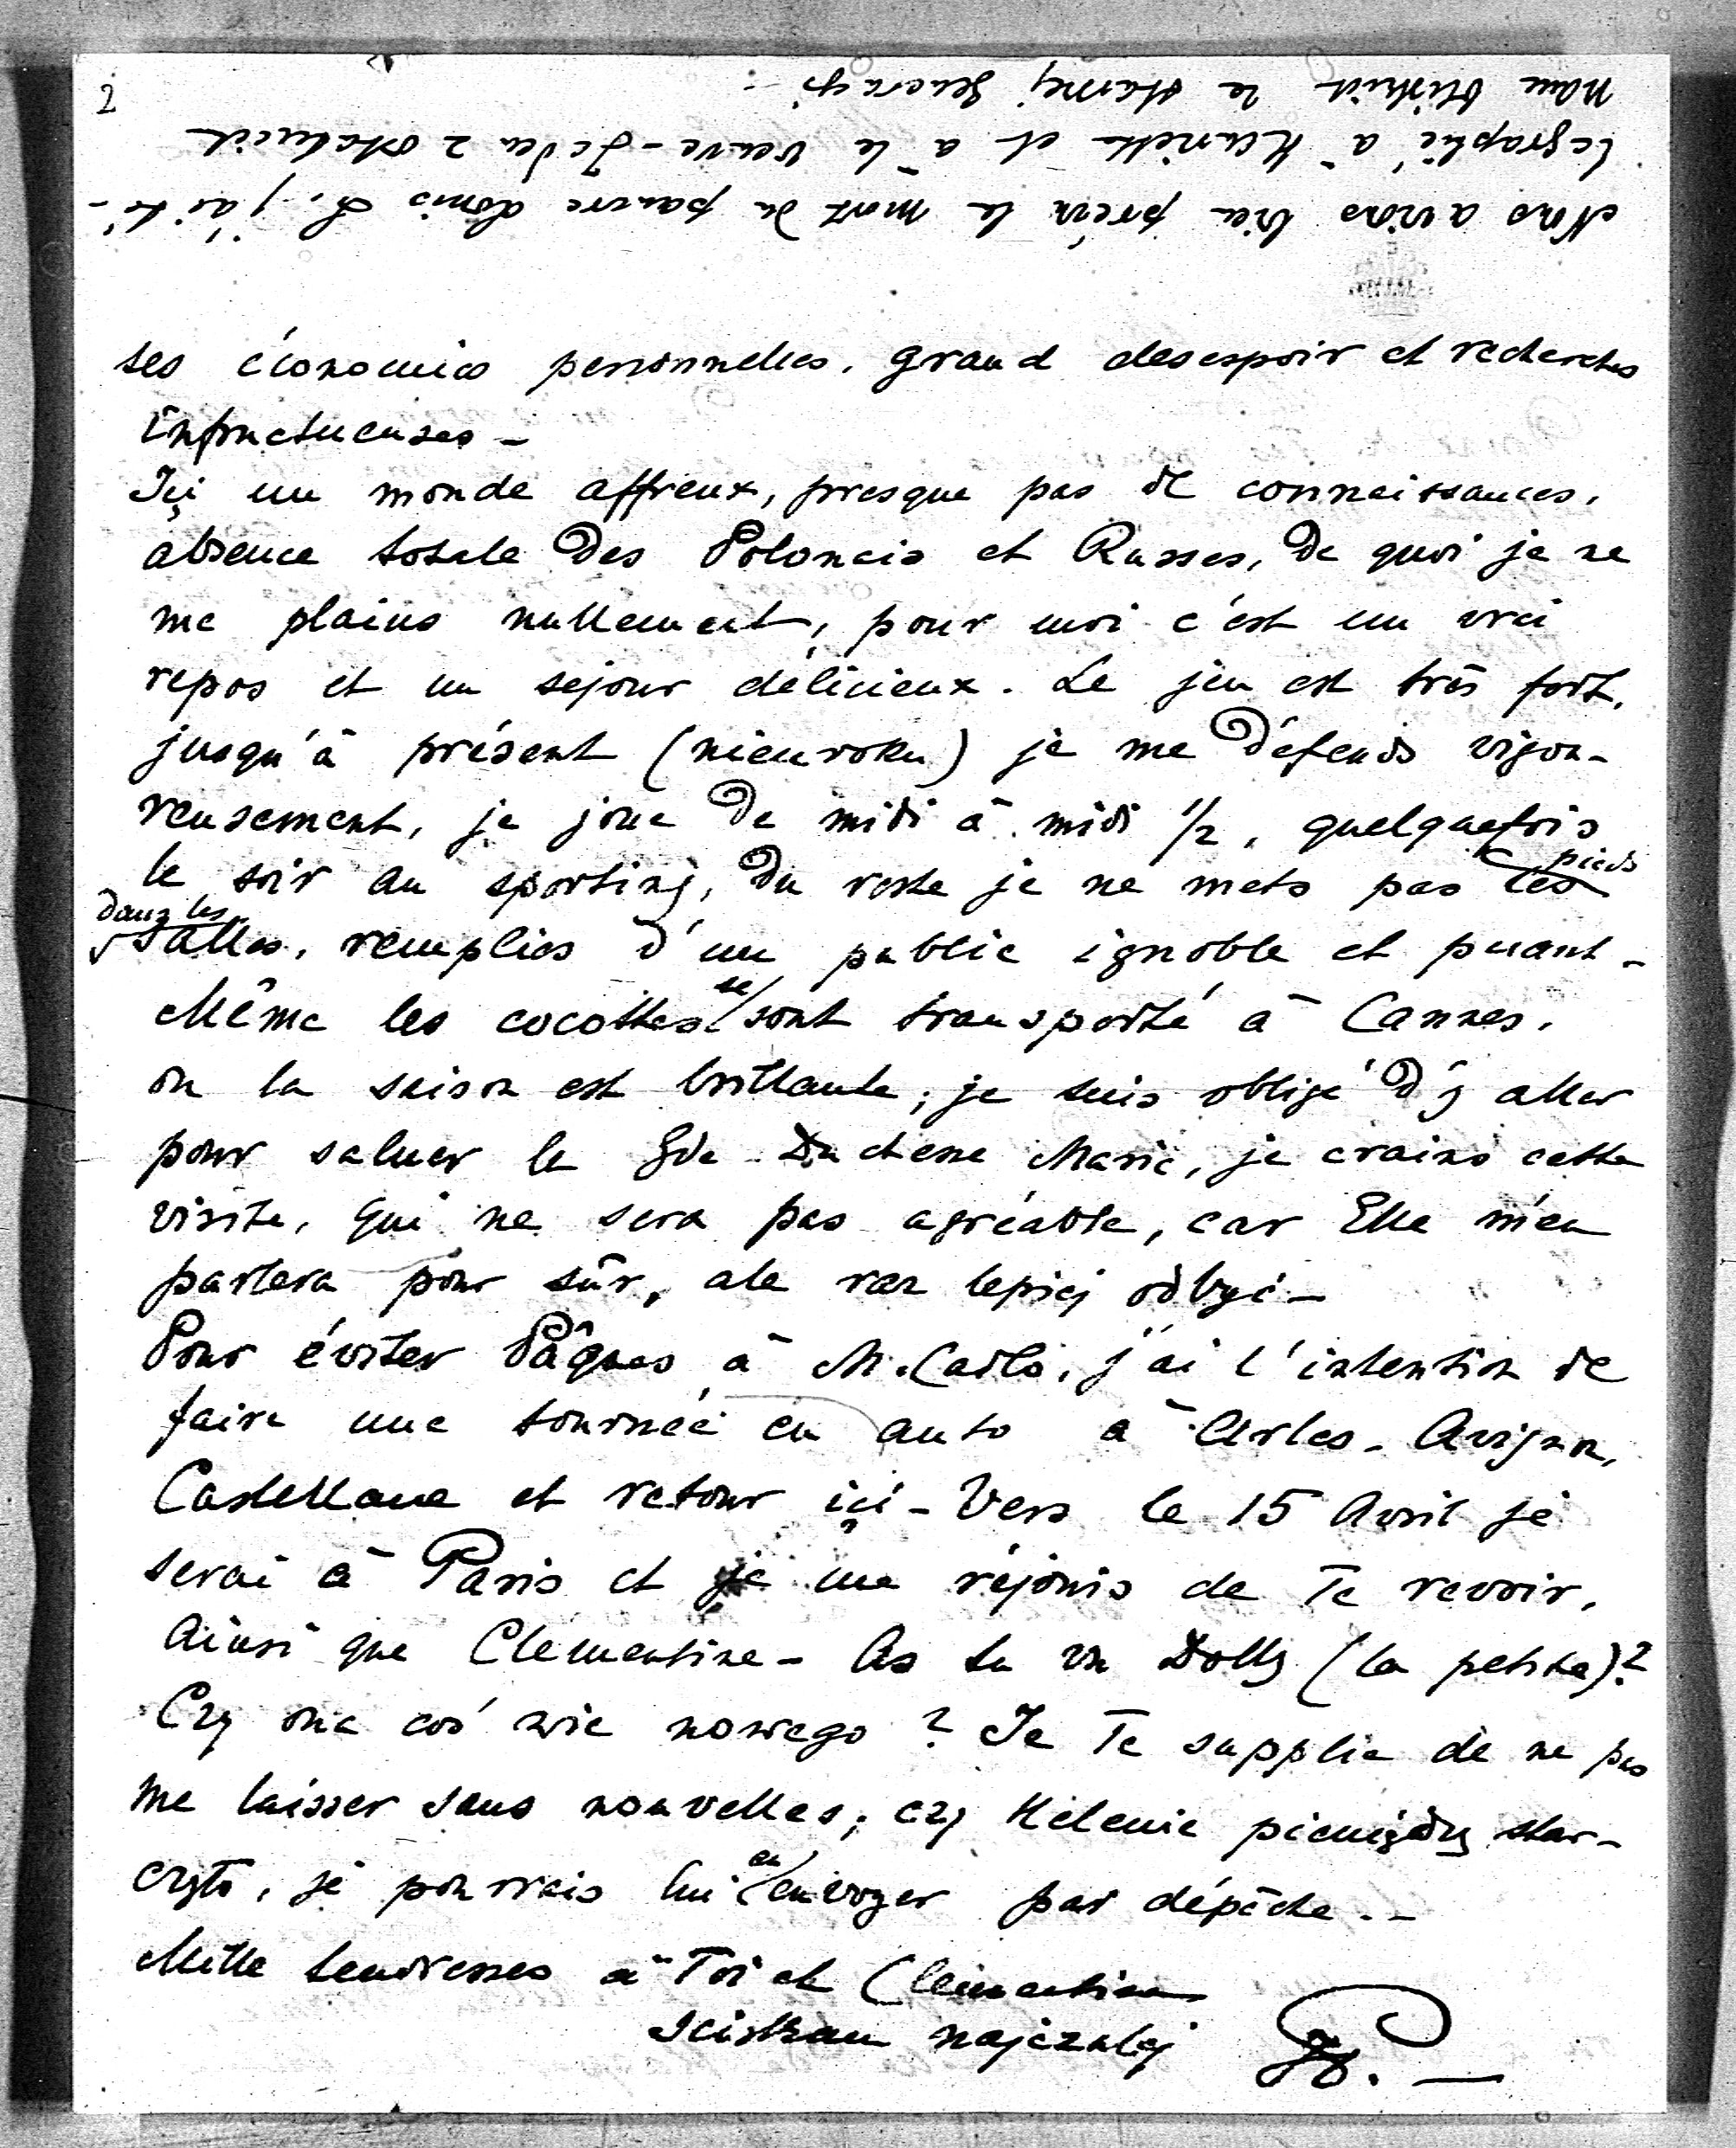 2
ses économies personnelles. grand desespoir et recherches
infructueuses -
Içi un monde affreux, presque pas de connaissances.
absence totale des Polonais et Russes, de quoi je ne
me plains nullement, pour moi c'est un vrai
repos et un sejour délicieux. Le jeu est très fort.
jusqu'à présent (nieuroku) je me défends vigou-
reusement, je joue de midi à midi 1/2, quelquefois
le soir au sporting, du reste je ne mets pas les pieds
dans les salles, remplies d'un public ignoble et puant -
Même les cocottes se sont transporté à Cannes.
ou la saison est brillante, je suis obligé d'y aller
pour saluer la Gde Duchesse Marie, je crains cette
visite, qui ne sera pas agréable, car Elle m'en
parlera pour sûr, ale raz lepiej odbyć -
Pour éviter Pâques à M. Carlo, j'ai l'intention de
faire une tournée en auto à Arles - Avignon,
Castellane et retour içi - Vers le 15 Avril je
serai à Paris et je me réjouis de Te revoir,
Ainsi que Clementine - As tu vu Dolly (la petite)?
Czy ona coś wie nowego? Je Te supplie de ne pas
me laisser sans nouvelles, czy Helenie pieniędzy star-
czyło, je pourrais lui en envoyer par dépêche. -
Mille tendresses à Toi et Clementine
sciskam najczulej
Nous avions bien prévu la mort du pauvre Louis L. j'ai té-
légraphié à et à la veuve - Je du 2